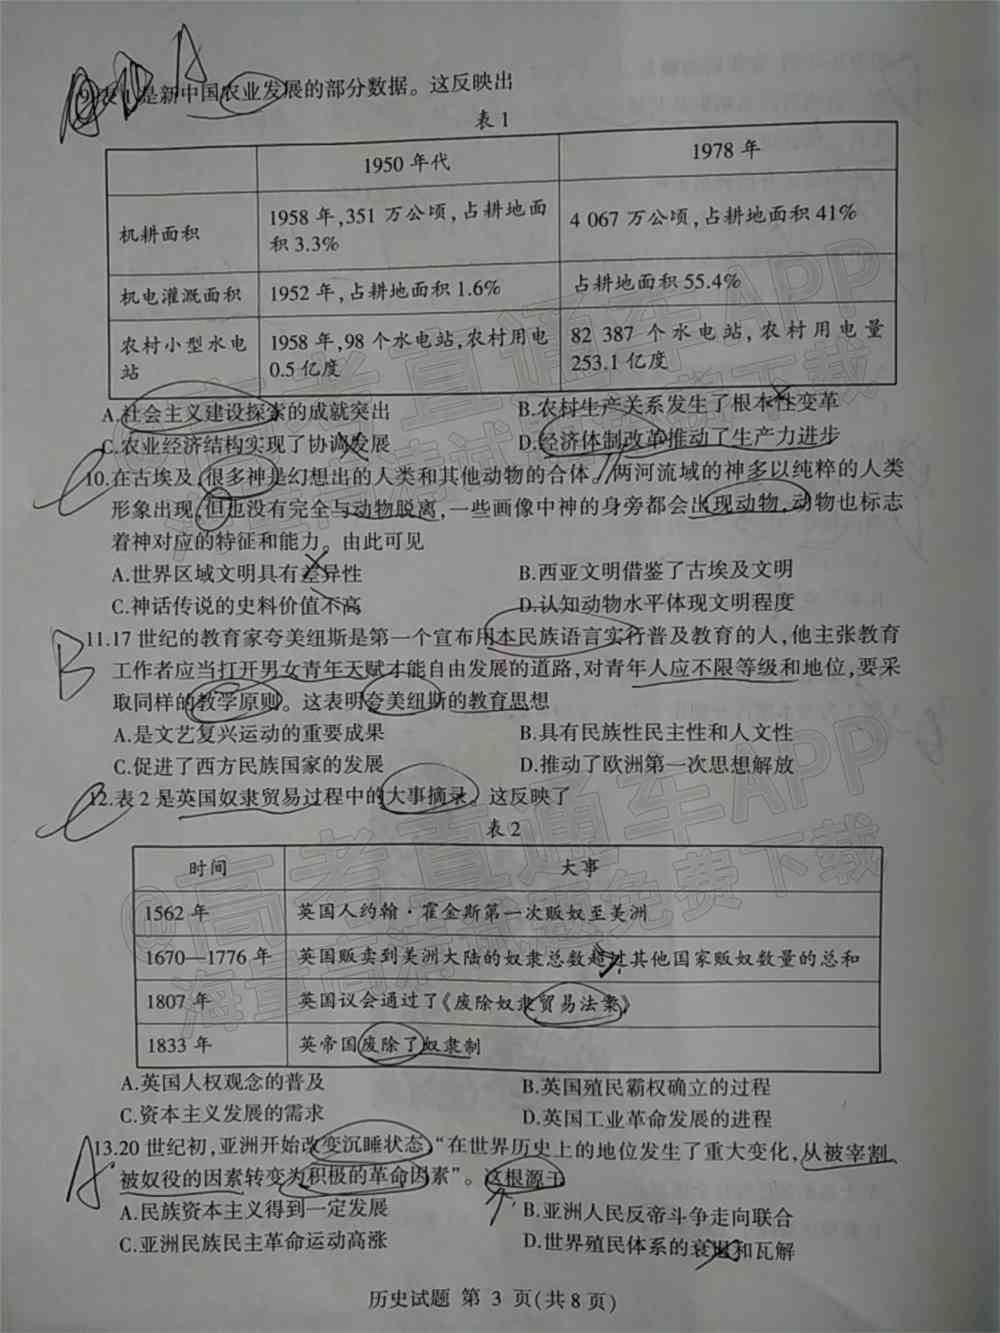 9.表1是新中国农业发展的部分数据。这反映出
表1
1950年代 1978年
机耕面积 1958年,351万公顷,占耕地面积3.3% 4 067万公顷,占耕地面积41%
机电灌溉面积 1952年,占耕地面积1.6% 占耕地面积55.4%
农村小型水电站 1958年,98个水电站,农村用电0.5亿度 82 387个水电站,农村用电量253.1亿度
A.社会主义建设探索的成就突出 B.农村生产关系发生了根本性变革
C.农业经济结构实现了协调发展 D.经济体制改革推动了生产力进步
10.在古埃及,很多神是幻想出的人类和其他动物的合体。两河流域的神多以纯粹的人类
形象出现,但也没有完全与动物脱离,一些画像中神的身旁都会出现动物,动物也标志
着神对应的特征和能力。由此可见
A.世界区域文明具有差异性 B.西亚文明借鉴了古埃及文明
C.神话传说的史料价值不高 D.认知动物水平体现文明程度
B
11.17世纪的教育家夸美纽斯是第一个宣布用本民族语言实行普及教育的人,他主张教育
工作者应当打开男女青年天赋才能自由发展的道路,对青年人应不限等级和地位,要采
取同样的教学原则。这表明夸美纽斯的教育思想
A.是文艺复兴运动的重要成果 B.具有民族性民主性和人文性
C.促进了西方民族国家的发展 D.推动了欧洲第一次思想解放
12.表2是英国奴隶贸易过程中的大事摘录。这反映了
表2
时间 大事
1562年 英国人约翰·霍金斯第一次贩奴至美洲
1670—1776年 英国贩卖到美洲大陆的奴隶总数超过其他国家贩奴数量的总和
1807年 英国议会通过了《废除奴隶贸易法案》
1833年 英帝国废除了奴隶制
A.英国人权观念的普及 B.英国殖民霸权确立的过程
C.资本主义发展的需求 D.英国工业革命发展的进程
A
13.20世纪初,亚洲开始改变沉睡状态,“在世界历史上的地位发生了重大变化,从被宰割、
被奴役的因素转变为积极的革命因素”。这根源于
A.民族资本主义得到一定发展 B.亚洲人民反帝斗争走向联合
C.亚洲民族民主革命运动高涨 D.世界殖民体系的衰退和瓦解
历史试题 第 3 页(共8页)
@高考直通车APP
海量高清试题免费下载